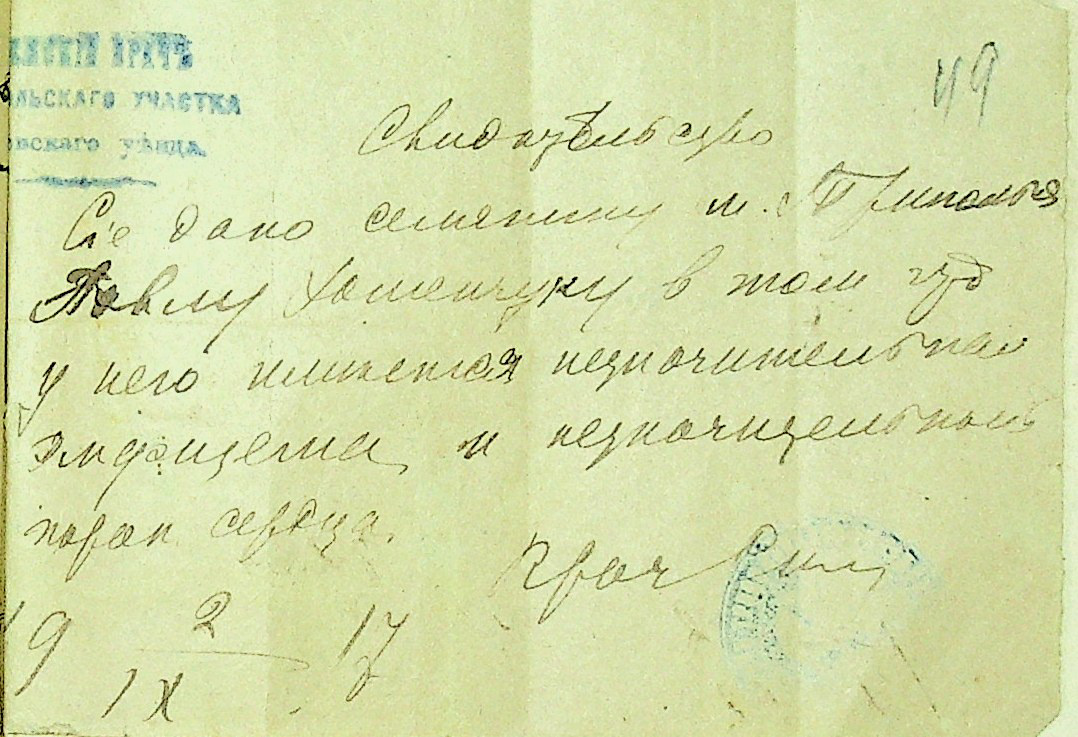 ВРАЧЪ
УЧАСТКА
уѣзда.
49
Свидѣтельство
Сіе дано семянину м. Триполья
Павлу Хоменчуку в том что
у него имѣется незначительная
эмфизема и незначительный
порок сердца.
Врач
19 2/IX 17